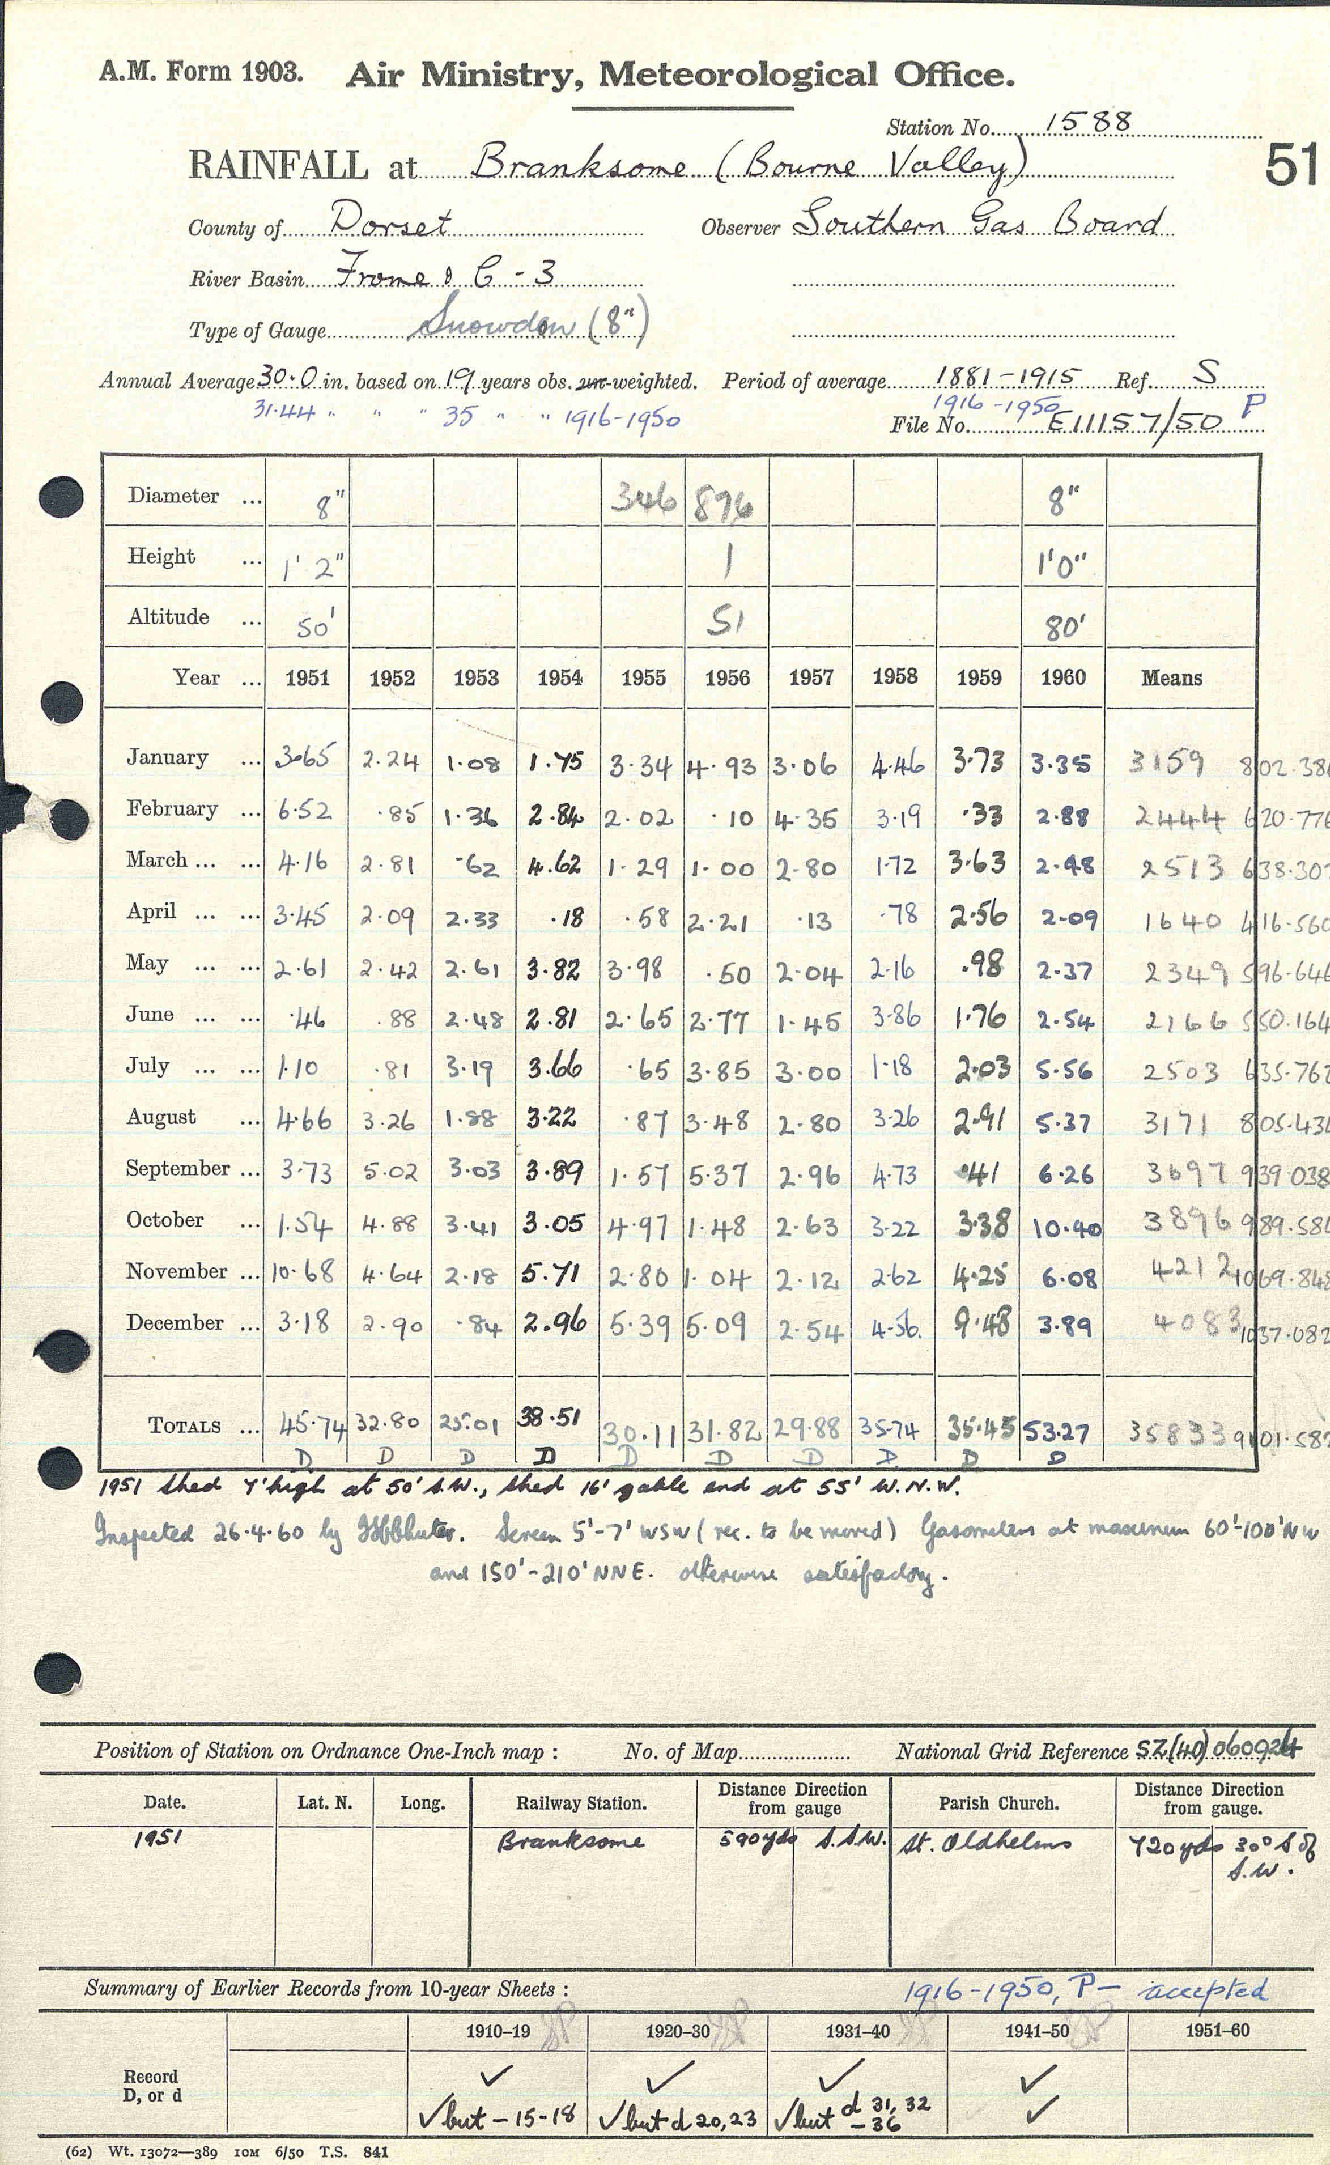 A.M. Form 1903. Air Ministry, Meteorological Office.
Station No. 1588
RAINFALL at Branksome (Bourne Valley)
51
County of Dorset Observer Southern Gas Board
River Basin Frome & C - 3
Type of Gauge Snowdon (8")
Annual Average 30.0 in. based on 19 years obs. un-weighted. Period of average 1881-1915 Ref. S
31.44 " " " 35 " " 1916-1950 1916-1950 P
File No. E11157/50
Diameter ... 8" 346 876 8"
Height ... 1' 2" 1 1'0"
Altitude ... 50' 51 80'
Year ... 1951 1952 1953 1954 1955 1956 1957 1958 1959 1960 Means
January ... 3.65 2.24 1.08 1.75 3.34 4.93 3.06 4.46 3.73 3.35 3159 802.38
February ... 6.52 .85 1.36 2.84 2.02 .10 4.35 3.19 .33 2.88 2444 620.776
March ... ... 4.16 2.81 .62 4.62 1.29 1.00 2.80 1.72 3.63 2.48 2513 638.30
April ... ... 3.45 2.09 2.33 .18 .58 2.21 .13 .78 2.56 2.09 1640 416.560
May ... ... 2.61 2.42 2.61 3.82 3.98 .50 2.04 2.16 .98 2.37 2349 596.646
June ... ... .46 .88 2.48 2.81 2.65 2.77 1.45 3.86 1.76 2.54 2166 550.164
July ... ... 1.10 .81 3.19 3.66 .65 3.85 3.00 1.18 2.03 5.56 2503 635.762
August ... 4.66 3.26 1.88 3.22 .87 3.48 2.80 3.26 2.91 5.37 3171 805.434
September ... 3.73 5.02 3.03 3.89 1.57 5.37 2.96 4.73 .41 6.26 3697 939.038
October ... 1.54 4.88 3.41 3.05 4.97 1.48 2.63 3.22 3.38 10.40 3896 989.584
November ... 10.68 4.64 2.18 5.71 2.80 1.04 2.12 2.62 4.25 6.08 4212 1069.848
December ... 3.18 2.90 .84 2.96 5.39 5.09 2.54 4.56 9.48 3.89 4083 1037.082
TOTALS ... 45.74 32.80 25.01 38.51 30.11 31.82 29.88 35.74 35.45 53.27 35833 9101.582
D D D D D D D D D D
1951 Shed 7' high at 50' S.W., shed 16' gable end at 55' W.N.W.
Inspected 26.4.60 by Screen 5'-7' WSW (rec. to be moved) Gasometers at maximum 60'-100' NW
and 150'-210' NNE. otherwise satisfactory.
Position of Station on Ordnance One-Inch map : No. of Map National Grid Reference SZ(40)060924
Date. Lat. N. Long. Railway Station. Distance Direction from gauge Parish Church. Distance Direction from gauge.
1951 Branksome 590yds S.S.W. St. Oldhelms 720yds 30° S of S.W.
Summary of Earlier Records from 10-year Sheets : 1916-1950, P- accepted
1910–19 1920–30 1931–40 1941–50 1951–60
Record D, or d ✓ ✓ ✓ ✓
✓but - 15-18 ✓but d 20,23 ✓but d 31, 32 - 36 ✓
(62) Wt. 13072—389 10M 6/50 T.S. 841